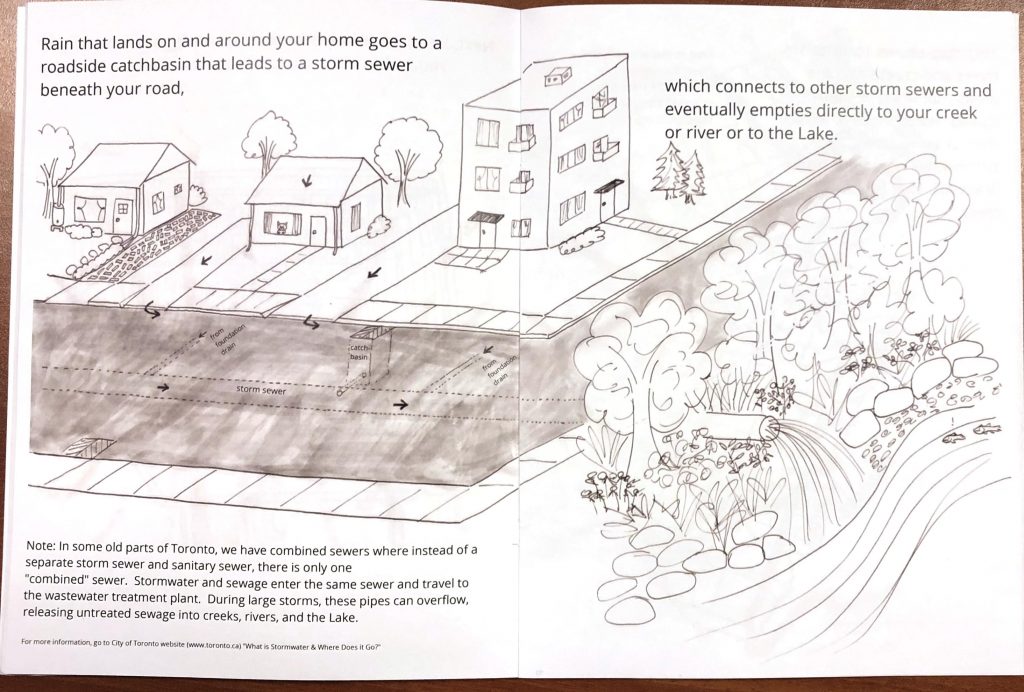 Rain that lands on and around your home goes to a
roadside catchbasin that leads to a storm sewer
beneath your road,
which connects to other storm sewers and
eventually empties directly to your creek
or river or to the Lake.
from
foundation
drain
catch
basin
from
foundation
drain
storm sewer
Note: In some old parts of Toronto, we have combined sewers where instead of a
separate storm sewer and sanitary sewer, there is only one
"combined" sewer. Stormwater and sewage enter the same sewer and travel to
the wastewater treatment plant. During large storms, these pipes can overflow,
releasing untreated sewage into creeks, rivers, and the Lake.
For more information, go to City of Toronto website (www.toronto.ca) "What is Stormwater & Where Does it Go?"